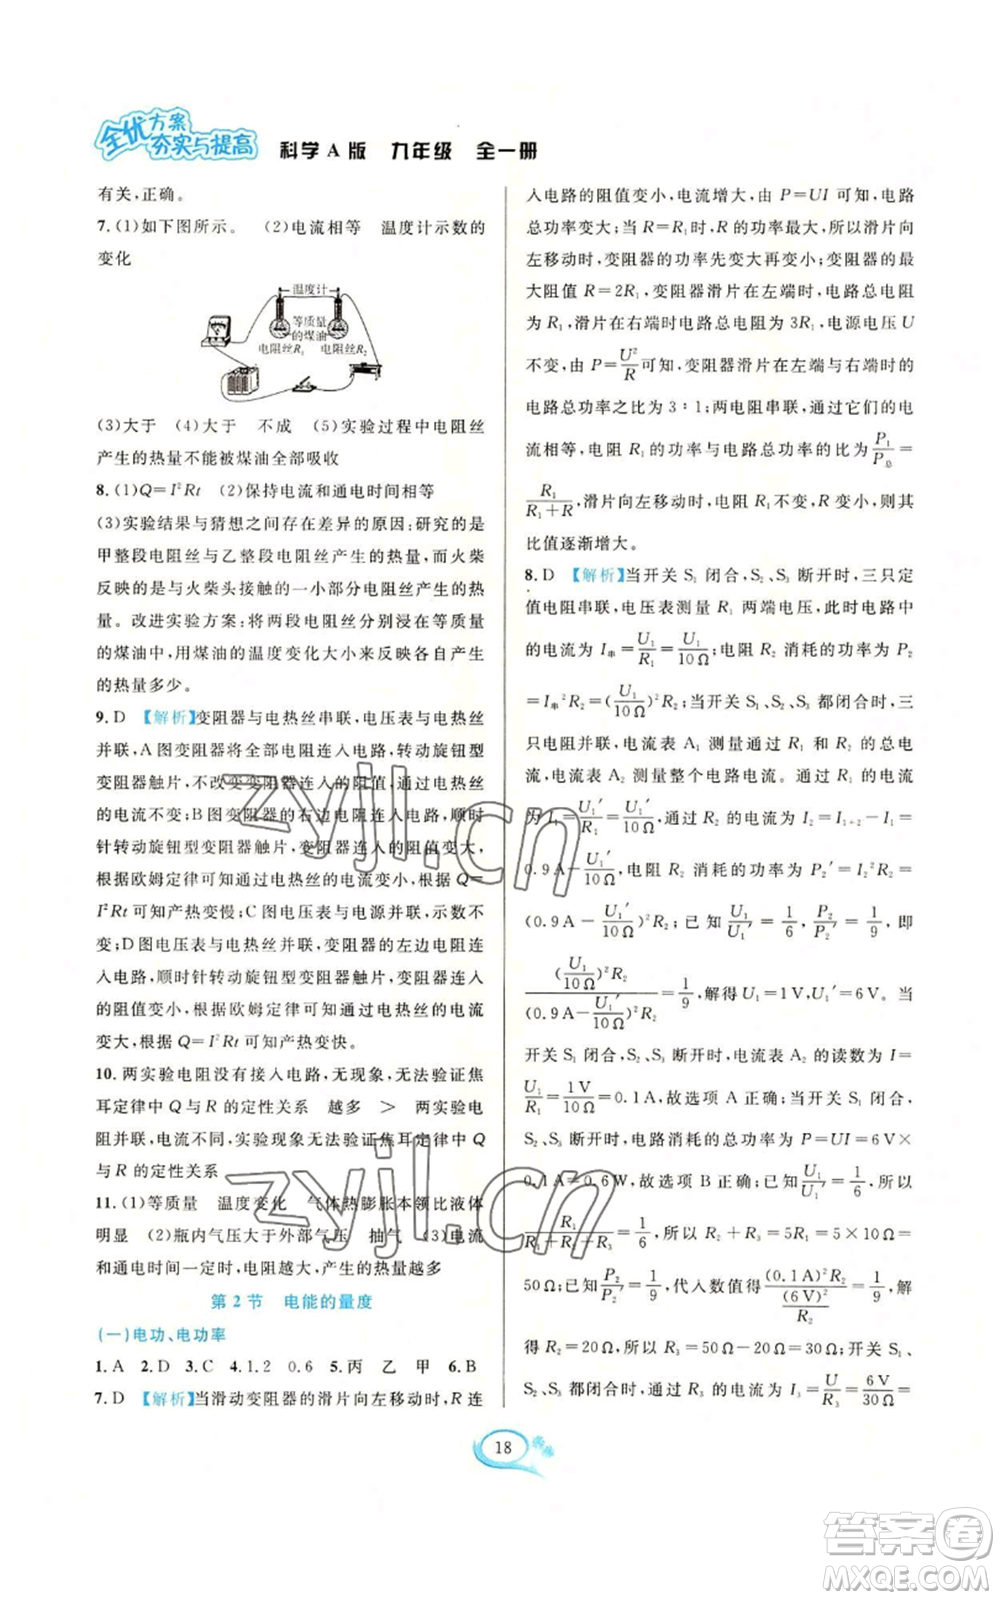 全优方案
夯实与提高
科学A版 九年级 全一册
有关,正确。
7.(1)如下图所示。 (2)电流相等 温度计示数的
变化
温度计
等质量
的煤油
电阻丝R₁ 电阻丝R₂
(3)大于 (4)大于 不成 (5)实验过程中电阻丝
产生的热量不能被煤油全部吸收
8.(1)Q=I²Rt (2)保持电流和通电时间相等
(3)实验结果与猜想之间存在差异的原因:研究的是
甲整段电阻丝与乙整段电阻丝产生的热量,而火柴
反映的是与火柴头接触的一小部分电阻丝产生的热
量。改进实验方案:将两段电阻丝分别浸在等质量
的煤油中,用煤油的温度变化大小来反映各自产生
的热量多少。
9.D 【解析】变阻器与电热丝串联,电压表与电热丝
并联,A图变阻器将全部电阻连入电路,转动旋钮型
变阻器触片,不改变变阻器连入的阻值,通过电热丝
的电流不变;B图变阻器的右边电阻连入电路,顺时
针转动旋钮型变阻器触片,变阻器连入的阻值变大,
根据欧姆定律可知通过电热丝的电流变小,根据Q=
I²Rt可知产热变慢;C图电压表与电源并联,示数不
变;D图电压表与电热丝并联,变阻器的左边电阻连
入电路,顺时针转动旋钮型变阻器触片,变阻器连入
的阻值变小,根据欧姆定律可知通过电热丝的电流
变大,根据Q=I²Rt可知产热变快。
10.两实验电阻没有接入电路,无现象,无法验证焦
耳定律中Q与R的定性关系 越多 > 两实验电
阻并联,电流不同,实验现象无法验证焦耳定律中Q
与R的定性关系
11.(1)等质量 温度变化 气体热膨胀本领比液体
明显 (2)瓶内气压大于外部气压 抽气 (3)电流
和通电时间一定时,电阻越大,产生的热量越多
第2节 电能的量度
(一)电功、电功率
1.A 2.D 3.C 4.1.2 0.6 5.丙 乙 甲 6.B
7.D 【解析】当滑动变阻器的滑片向左移动时,R连
入电路的阻值变小,电流增大,由P=UI可知,电路
功率变大;当R=R₁时,R的功率最大,所以滑片向
左移动时,变阻器的功率先变大再变小;变阻器的最
大阻值R=2R₁,变阻器滑片在左端时,电路总电阻
为R₁,滑片在右端时电路总电阻为3R₁,电源电压U
不变,由P=U²/R可知,变阻器滑片在左端与右端时的
电路总功率之比为3∶1;两电阻串联,通过它们的电
流相等,电阻R₁的功率与电路总功率的比为P₁/P总=
R₁/(R₁+R),滑片向左移动时,电阻R₁不变,R变小,则其
比值逐渐增大。
8.D 【解析】当开关S₁闭合,S₂、S₃断开时,三只定
值电阻串联,电压表测量R₁两端电压,此时电路中
的电流为I串=U₁/R₁=U₁/10Ω;电阻R₂消耗的功率为P₂
=I串²R₂=(U₁/10Ω)²R₂;当开关S₁、S₂、S₃都闭合时,三
只电阻并联,电流表A₁测量通过R₁和R₂的总电
流,电流表A₂测量整个电路电流。通过R₁的电流
为I₁=U₁′/R₁=U₁′/10Ω,通过R₂的电流为I₂=I₁₊₂−I₁=
0.9A−U₁′/10Ω,电阻R₂消耗的功率为P₂′=I₂²R₂=
(0.9A−U₁′/10Ω)²R₂;已知U₁/U₁′=1/6,P₂/P₂′=1/9,即
(U₁/10Ω)²R₂/(0.9A−U₁′/10Ω)²R₂=1/9,解得U₁=1V,U₁′=6V。当
开关S₁闭合,S₂、S₃断开时,电流表A₂的读数为I=
U₁/R₁=1V/10Ω=0.1A,故选项A正确;当开关S₁闭合,
S₂、S₃断开时,电路消耗的总功率为P=UI=6V×
0.1A=0.6W,故选项B正确;因为U₁/U₁′=1/6,所以
R₁/(R₁+R₂+R₃)=1/6,所以R₂+R₃=5R₁=5×10Ω=
50Ω;已知P₂/P₂′=1/9,代入数值得(0.1A)²R₂/((6V)²/R₂)=1/9,解
得R₂=20Ω,所以R₃=50Ω−20Ω=30Ω;开关S₁、
S₂、S₃都闭合时,通过R₃的电流为I₃=U/R₃=6V/30Ω=
18
zyjl.cn
zyjl.cn
答案圈
MXQE.COM